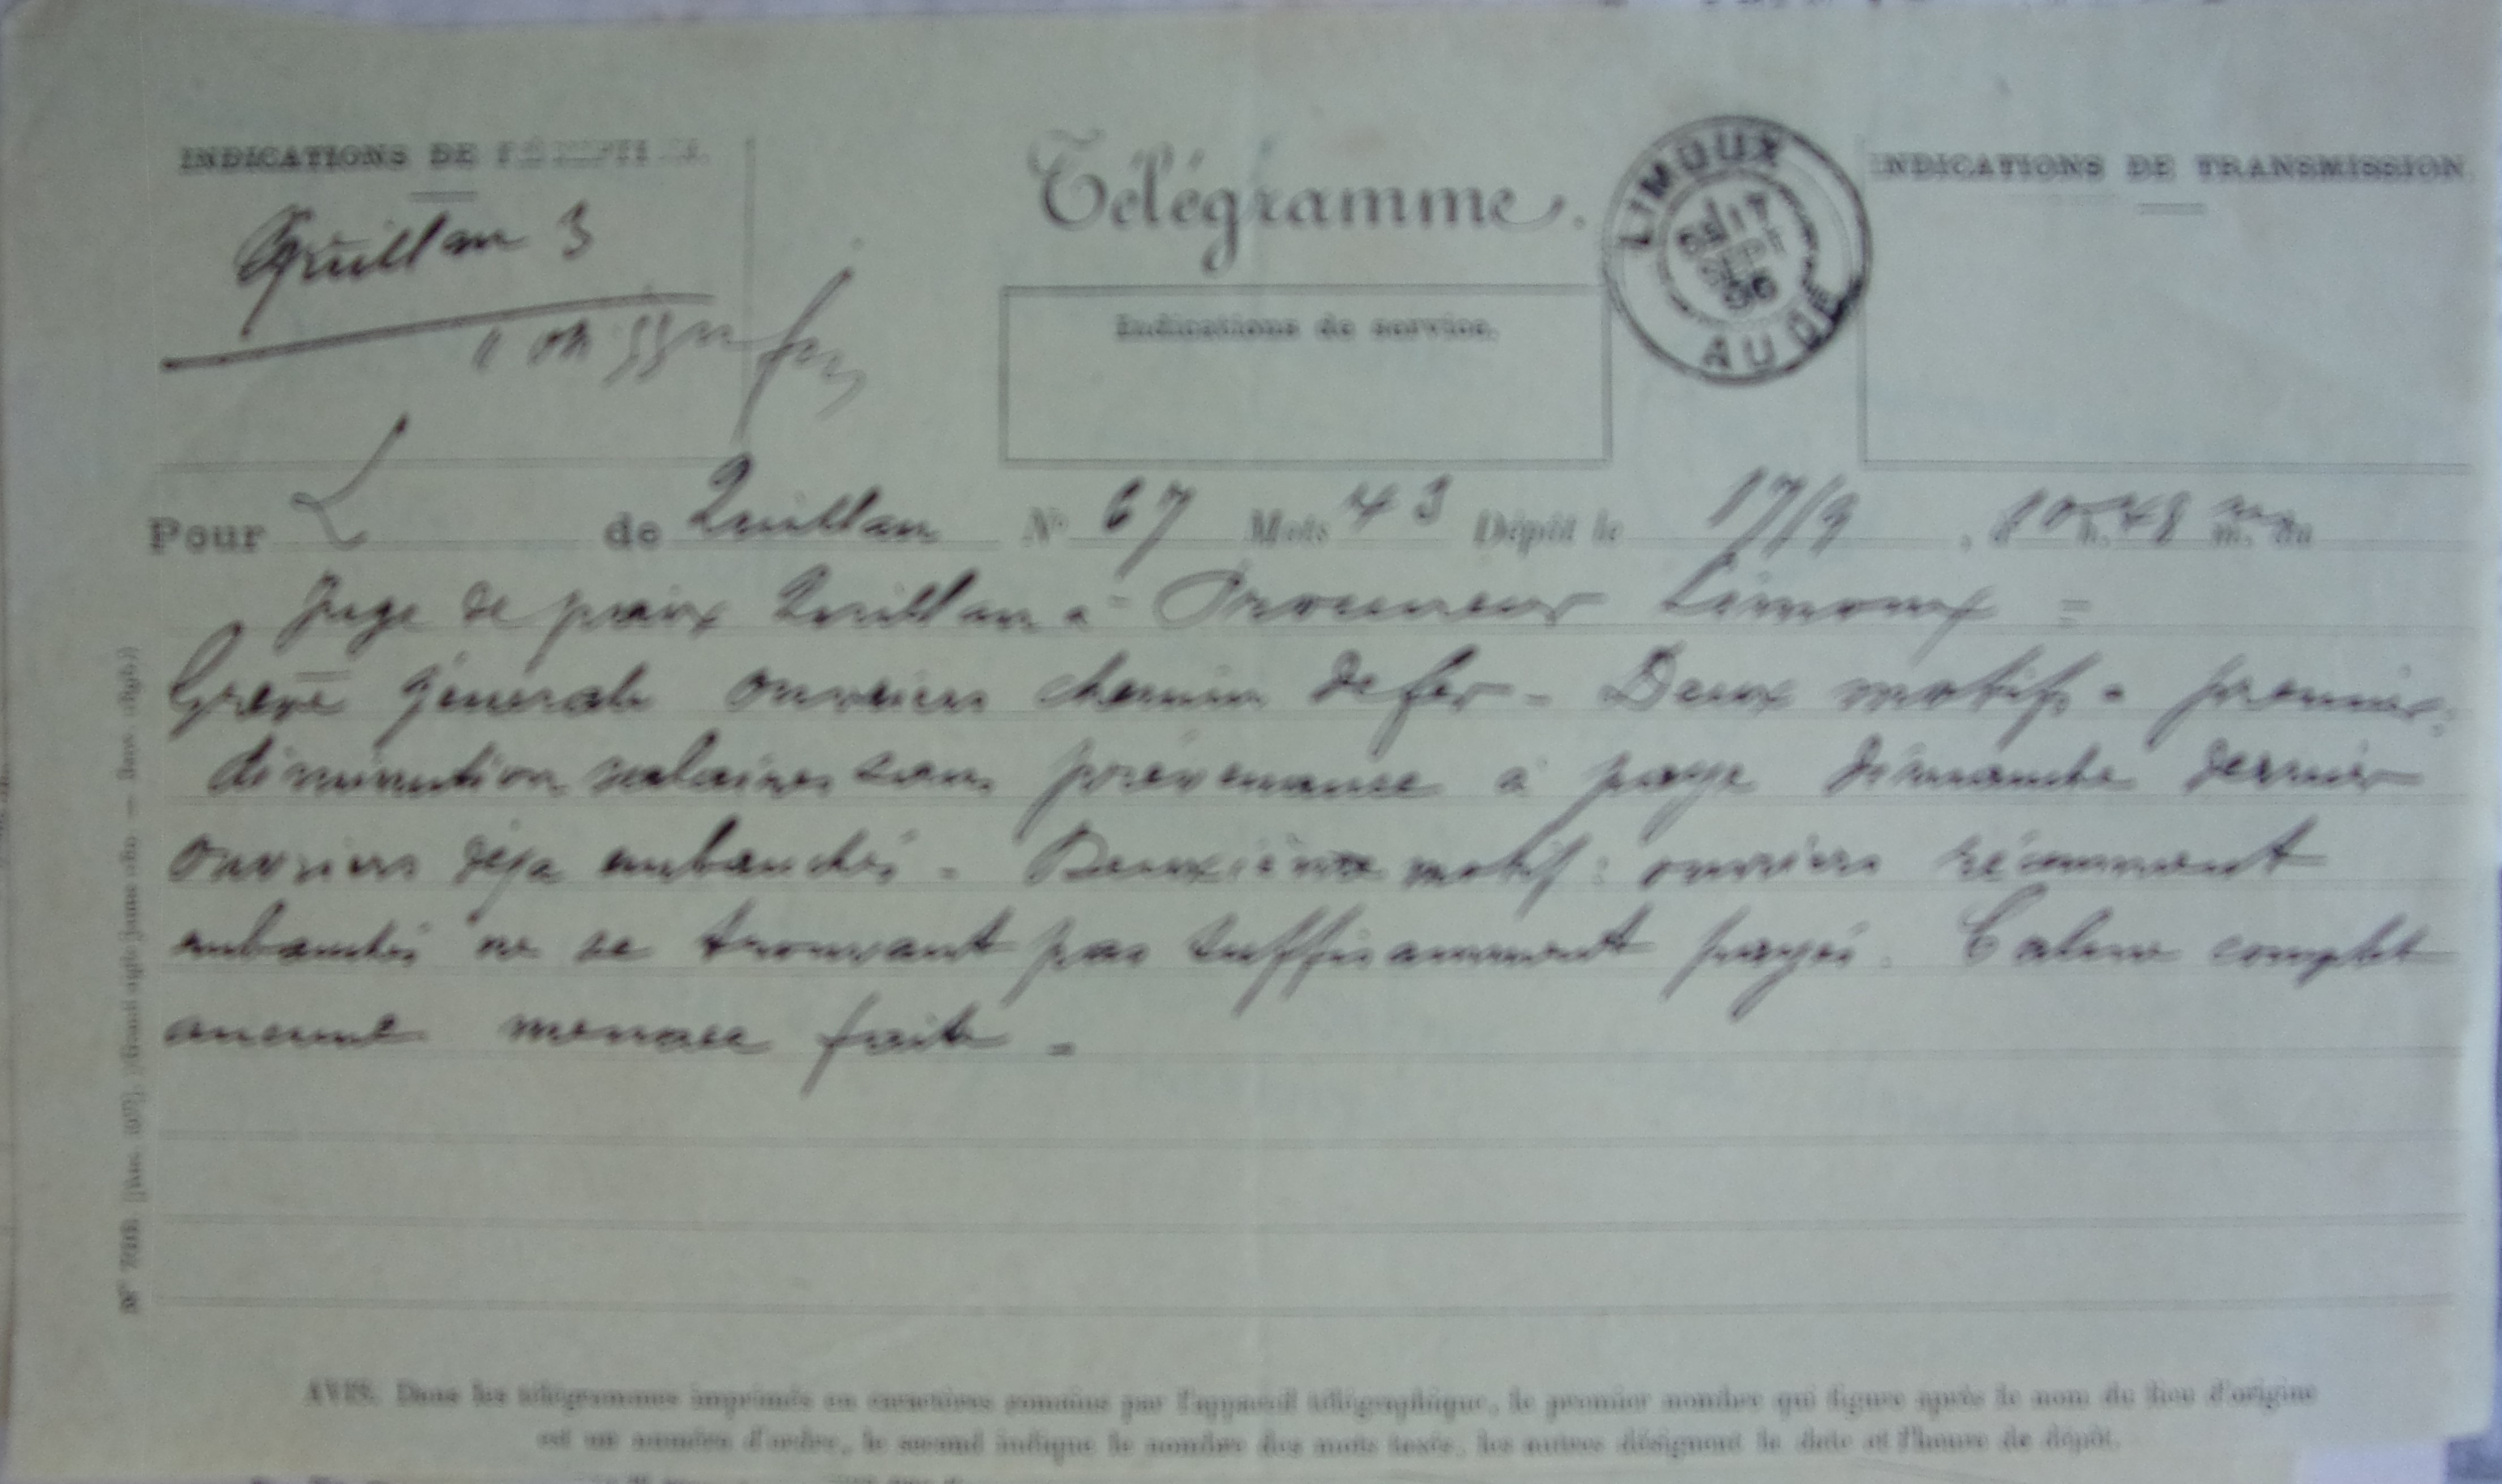 INDICATIONS DE RÉCEPTION.
Télégramme.
INDICATIONS DE TRANSMISSION.
LIMOUX
17
SEPT
06
AUDE
Quillan 3
Indications de service.
Pour L de Quillan N° 67 Mots 43 Dépôt le 17/9, 10 h. 48 m. du
Juge de paix Quillan à Procureur Limoux =
Grève générale ouvriers chemin de fer - Deux motifs - premier:
diminution salaires sans prévenance à paye dimanche dernier
ouvriers déja embauchés - Deuxième motif: ouvriers récemment
embauchés ne se trouvant pas suffisamment payés. Calme complet
aucune menace faite =
AVIS. Dans les télégrammes imprimés en caractères romains par l'appareil télégraphique, le premier nombre qui figure après le nom du lieu d'origine
est un numéro d'ordre, le second indique le nombre des mots taxés, les autres désignent la date et l'heure de dépôt.